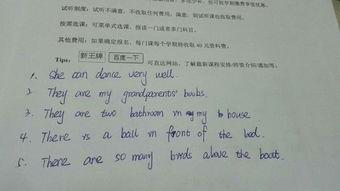 试听制度：试听不满意，不收取任何费用。满意，则试听课也收取费用。
按需选课：可菜单式选课，报读一门或者多门科目。
其他费用：如果确定报名，每门课每个学期将收取 40 元资料费。
Tips: 新王牌 百度一下 可直达网站，了解最新课程安排/师资介绍/通知等。
1. She can dance very well.
2. They are my grandparents' books.
3. They are two bathroom in my house.
4. There is a ball in front of the bed.
5. There are so many birds above the boat.